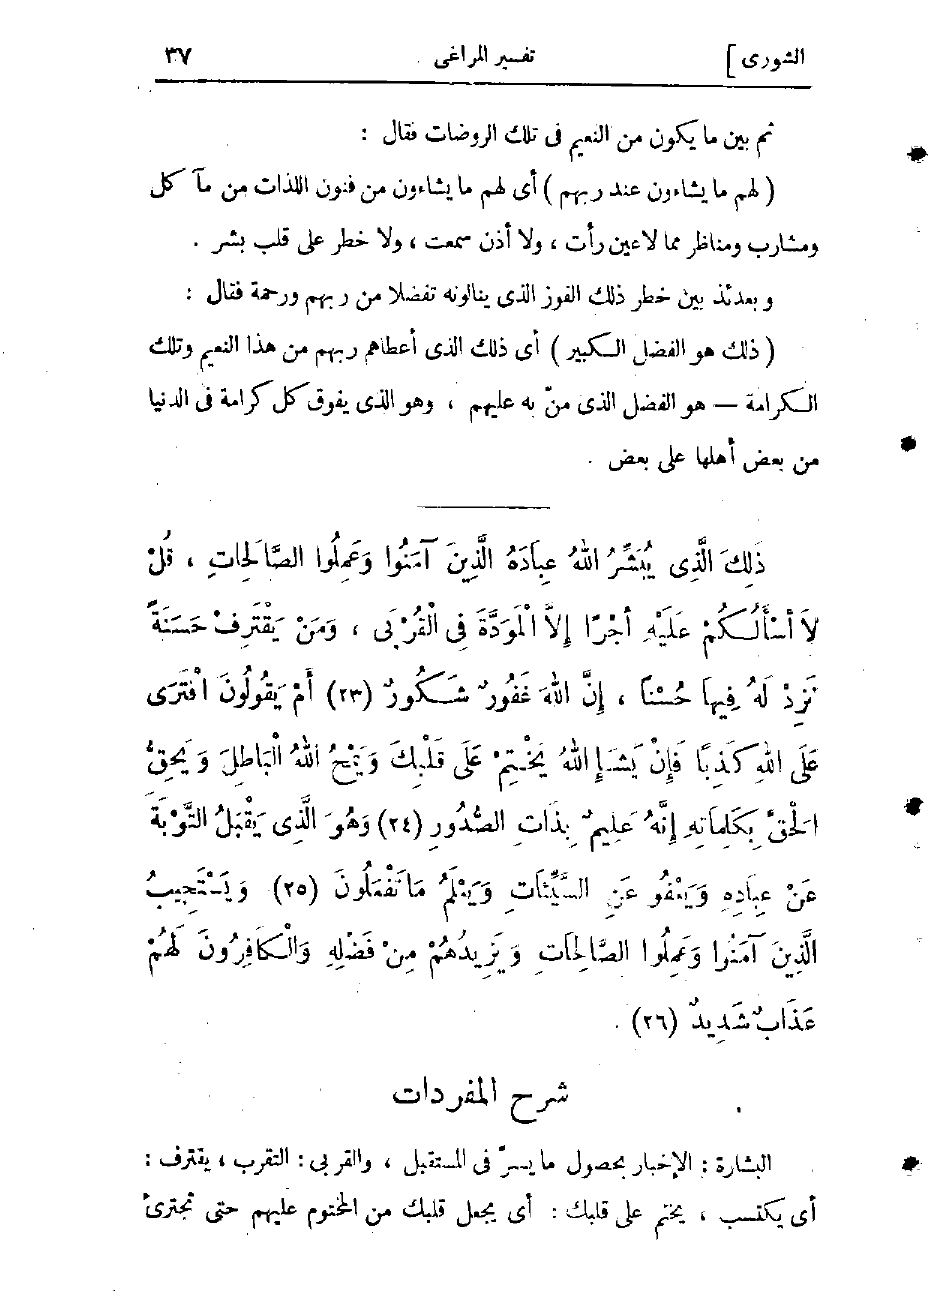 الشورى ] تفسير المراغى ٣٧
ثم بين ما يكون من النعيم فى تلك الروضات فقال :
( لهم ما يشاءون عند ربهم ) أى لهم ما يشاءون من فنون اللذات من مآ كل
ومشارب ومناظر مما لاعين رأت ، ولا أذن سمعت ، ولا خطر على قلب بشر .
وبعدئذ بين خطر ذلك الفوز الذى ينالونه تفضلا من ربهم ورحمة فقال :
( ذلك هو الفضل الكبير ) أى ذلك الذى أعطاهم ربهم من هذا النعيم وتلك
الكرامة — هو الفضل الذى منّ به عليهم ، وهو الذى يفوق كل كرامة فى الدنيا
من بعض أهلها على بعض .
ذَلِكَ الَّذِى يُبَشِّرُ اللهُ عِبَادَهُ الَّذِينَ آمَنُوا وَعَمِلُوا الصَّالِحَاتِ ، قُلْ
لاَ أَسْأَلُكُمْ عَلَيْهِ أَجْرًا إِلاَّ الْمَوَدَّةَ فِى الْقُرْبَى ، وَمَنْ يَقْتَرِفْ حَسَنَةً
نَزِدْ لَهُ فِيهَا حُسْنًا ، إِنَّ اللهَ غَفُورٌ شَكُورٌ (٢٣) أَمْ يَقُولُونَ افْتَرَى
عَلَى اللهِ كَذِبًا فَإِنْ يَشَإِ اللهُ يَخْتِمْ عَلَى قَلْبِكَ وَيَمْحُ اللهُ الْبَاطِلَ وَيُحِقُّ
الْحَقَّ بِكَلِمَاتِهِ إِنَّهُ عَلِيمٌ بِذَاتِ الصُّدُورِ (٢٤) وَهُوَ الَّذِى يَقْبَلُ التَّوْبَةَ
عَنْ عِبَادِهِ وَيَعْفُو عَنِ السَّيِّئَاتِ وَيَعْلَمُ مَا تَفْعَلُونَ (٢٥) وَيَسْتَجِيبُ
الَّذِينَ آمَنُوا وَعَمِلُوا الصَّالِحَاتِ وَيَزِيدُهُمْ مِنْ فَضْلِهِ وَالْكَافِرُونَ لَهُمْ
عَذَابٌ شَدِيدٌ (٢٦) .
شرح المفردات
البشارة : الإخبار بحصول ما يسرّ فى المستقبل ، والقربى : التقرب ، يقترف :
أى يكتسب ، يختم على قلبك : أى يجعل قلبك من المختوم عليهم حتى تجترئ